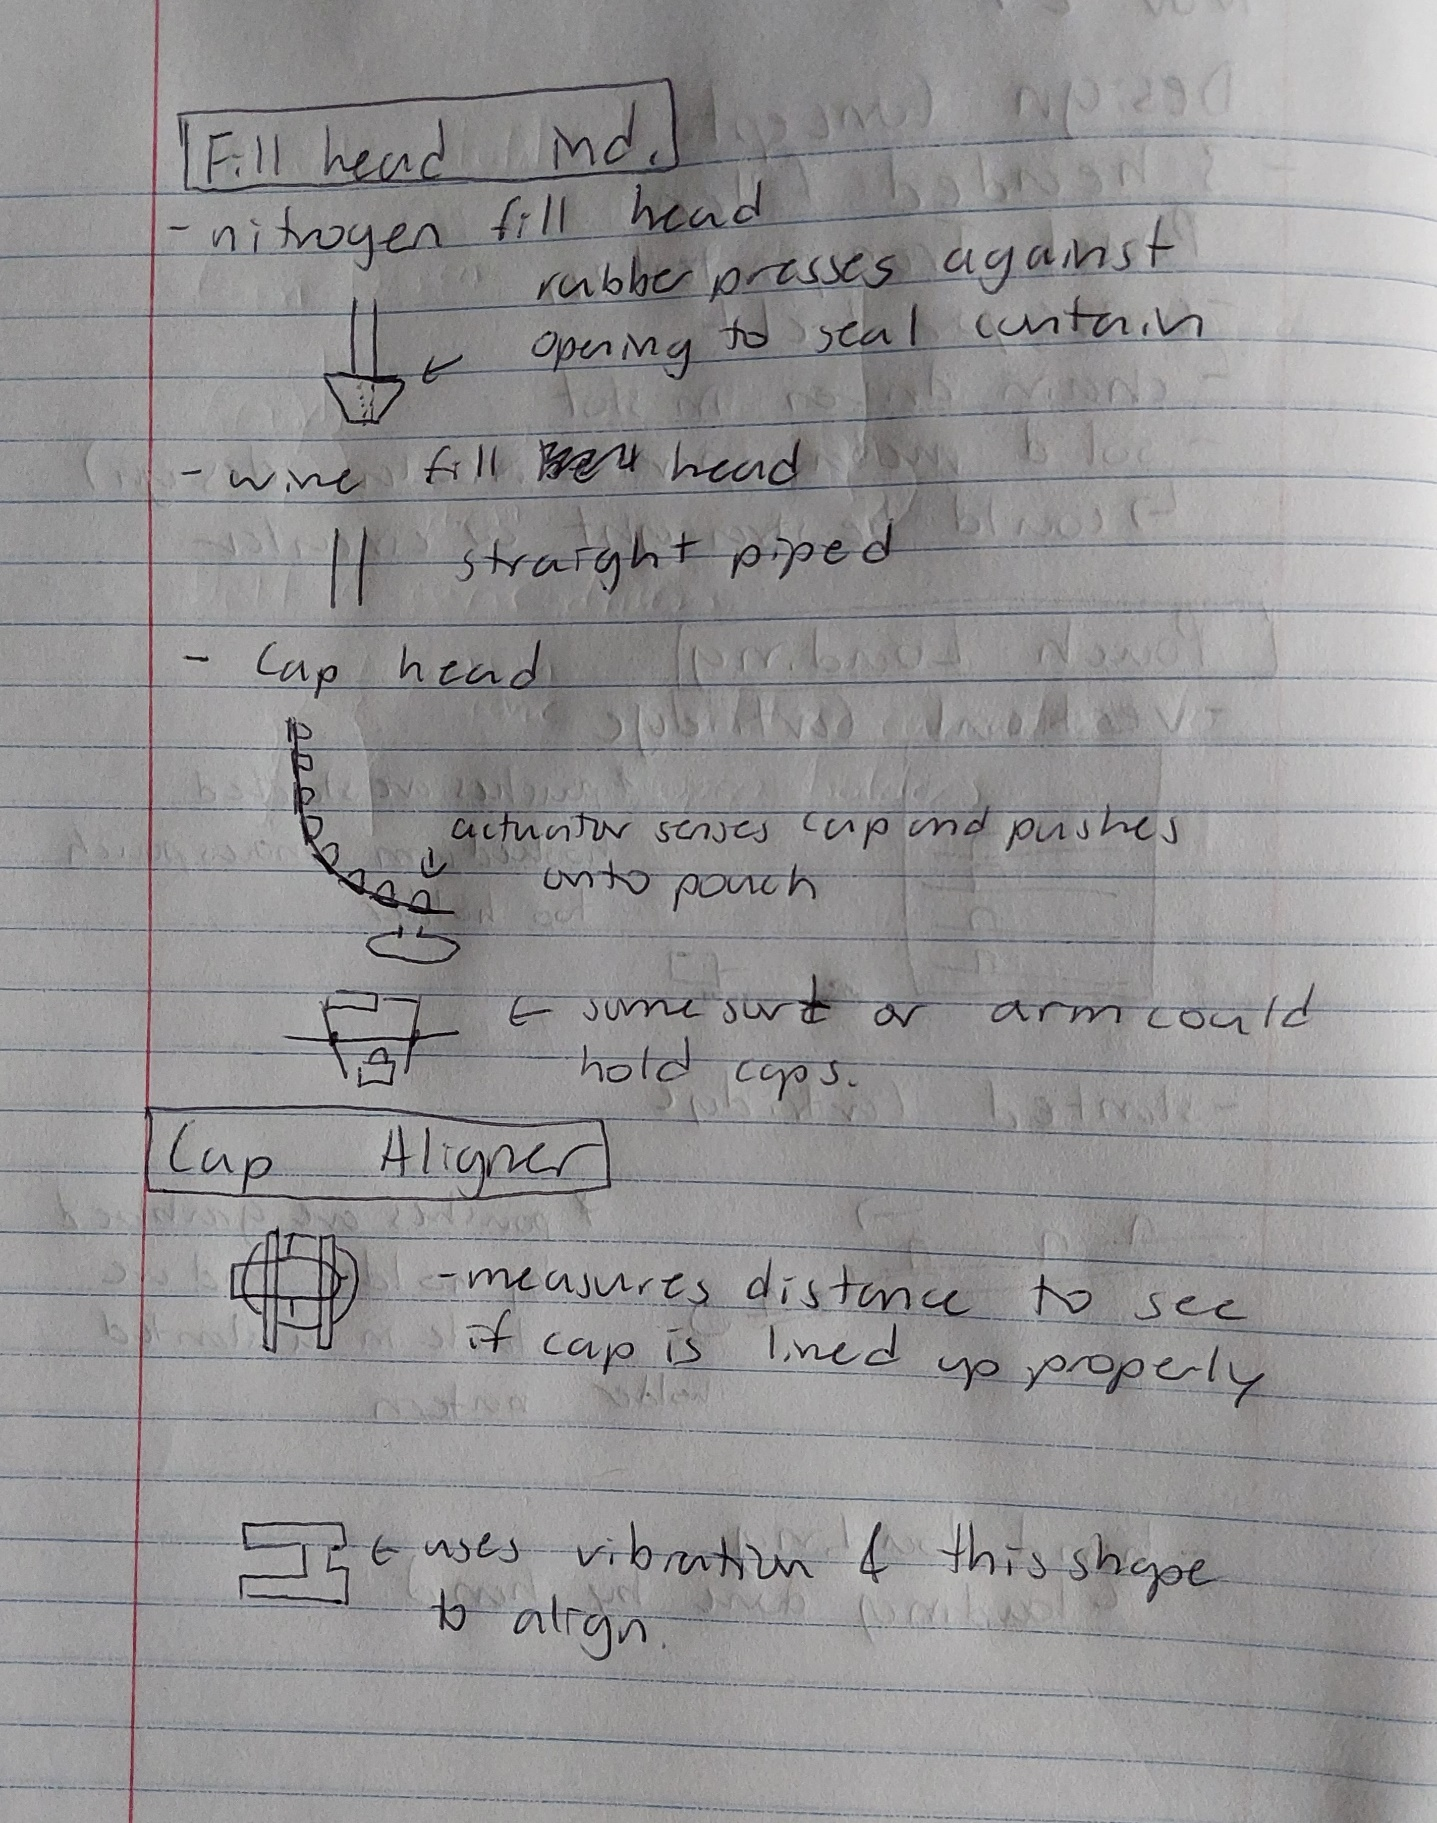 Fill head ind.
- nitrogen fill head
rubber presses against
opening to seal contain
- wine fill head
straight piped
- Cap head
actuator senses cap and pushes
onto pouch
← some sort or arm could
hold caps.
Cap Aligner
- measures distance to see
if cap is lined up properly
← uses vibration & this shape
to align.